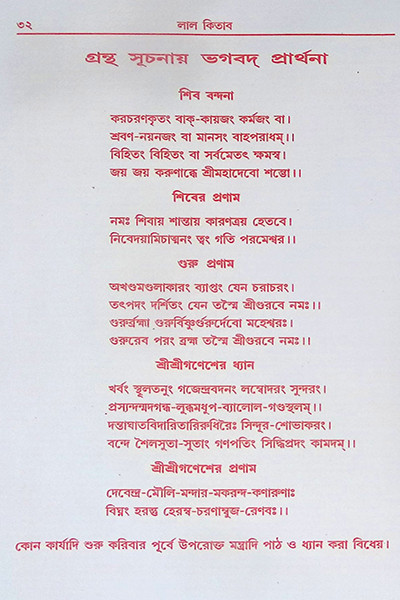 ৩২
লাল কিতাব
গ্রন্থ সূচনায় ভগবদ্ প্রার্থনা
শিব বন্দনা
করচরণকৃতং বাক্-কায়জং কর্মজং বা।
শ্রবণ-নয়নজং বা মানসং বাহপরাধম্।।
বিহিতং বিহিতং বা সর্বমেতৎ ক্ষমস্ব।
জয় জয় করুণাব্ধে শ্রীমহাদেবো শম্ভো।।
শিবের প্রণাম
নমঃ শিবায় শান্তায় কারণত্রয় হেতবে।
নিবেদয়ামিচাত্মনং ত্বং গতি পরমেশ্বর।।
গুরু প্রণাম
অখণ্ডমণ্ডলাকারং ব্যাপ্তং যেন চরাচরং।
তৎপদং দর্শিতং যেন তস্মৈ শ্রীগুরবে নমঃ।।
গুরুর্ব্রহ্মা গুরুর্বিষ্ণুর্গুরুর্দেবো মহেশ্বরঃ।
গুরুরেব পরং ব্রহ্মা তস্মৈ শ্রীগুরবে নমঃ।।
শ্রীশ্রীগণেশের ধ্যান
খর্বং স্থূলতনুং গজেন্দ্রবদনং লম্বোদরং সুন্দরং।
প্রস্যন্দন্মদগন্ধ-লুব্ধমধুপ-ব্যালোল-গণ্ডস্থলম্।।
দন্তাঘাতবিদারিতারিরুধিরৈঃ সিন্দূর-শোভাকরং।
বন্দে শৈলসুতা-সুতাং গণপতিং সিদ্ধিপ্রদং কামদম্।।
শ্রীশ্রীগণেশের প্রণাম
দেবেন্দ্র-মৌলি-মন্দার-মকরন্দ-কণারুণাঃ
বিঘ্নং হরন্তু হেরম্ব-চরণাম্বুজ-রেণবঃ।।
কোন কার্যাদি শুরু করিবার পূর্বে উপরোক্ত মন্ত্রাদি পাঠ ও ধ্যান করা বিধেয়।